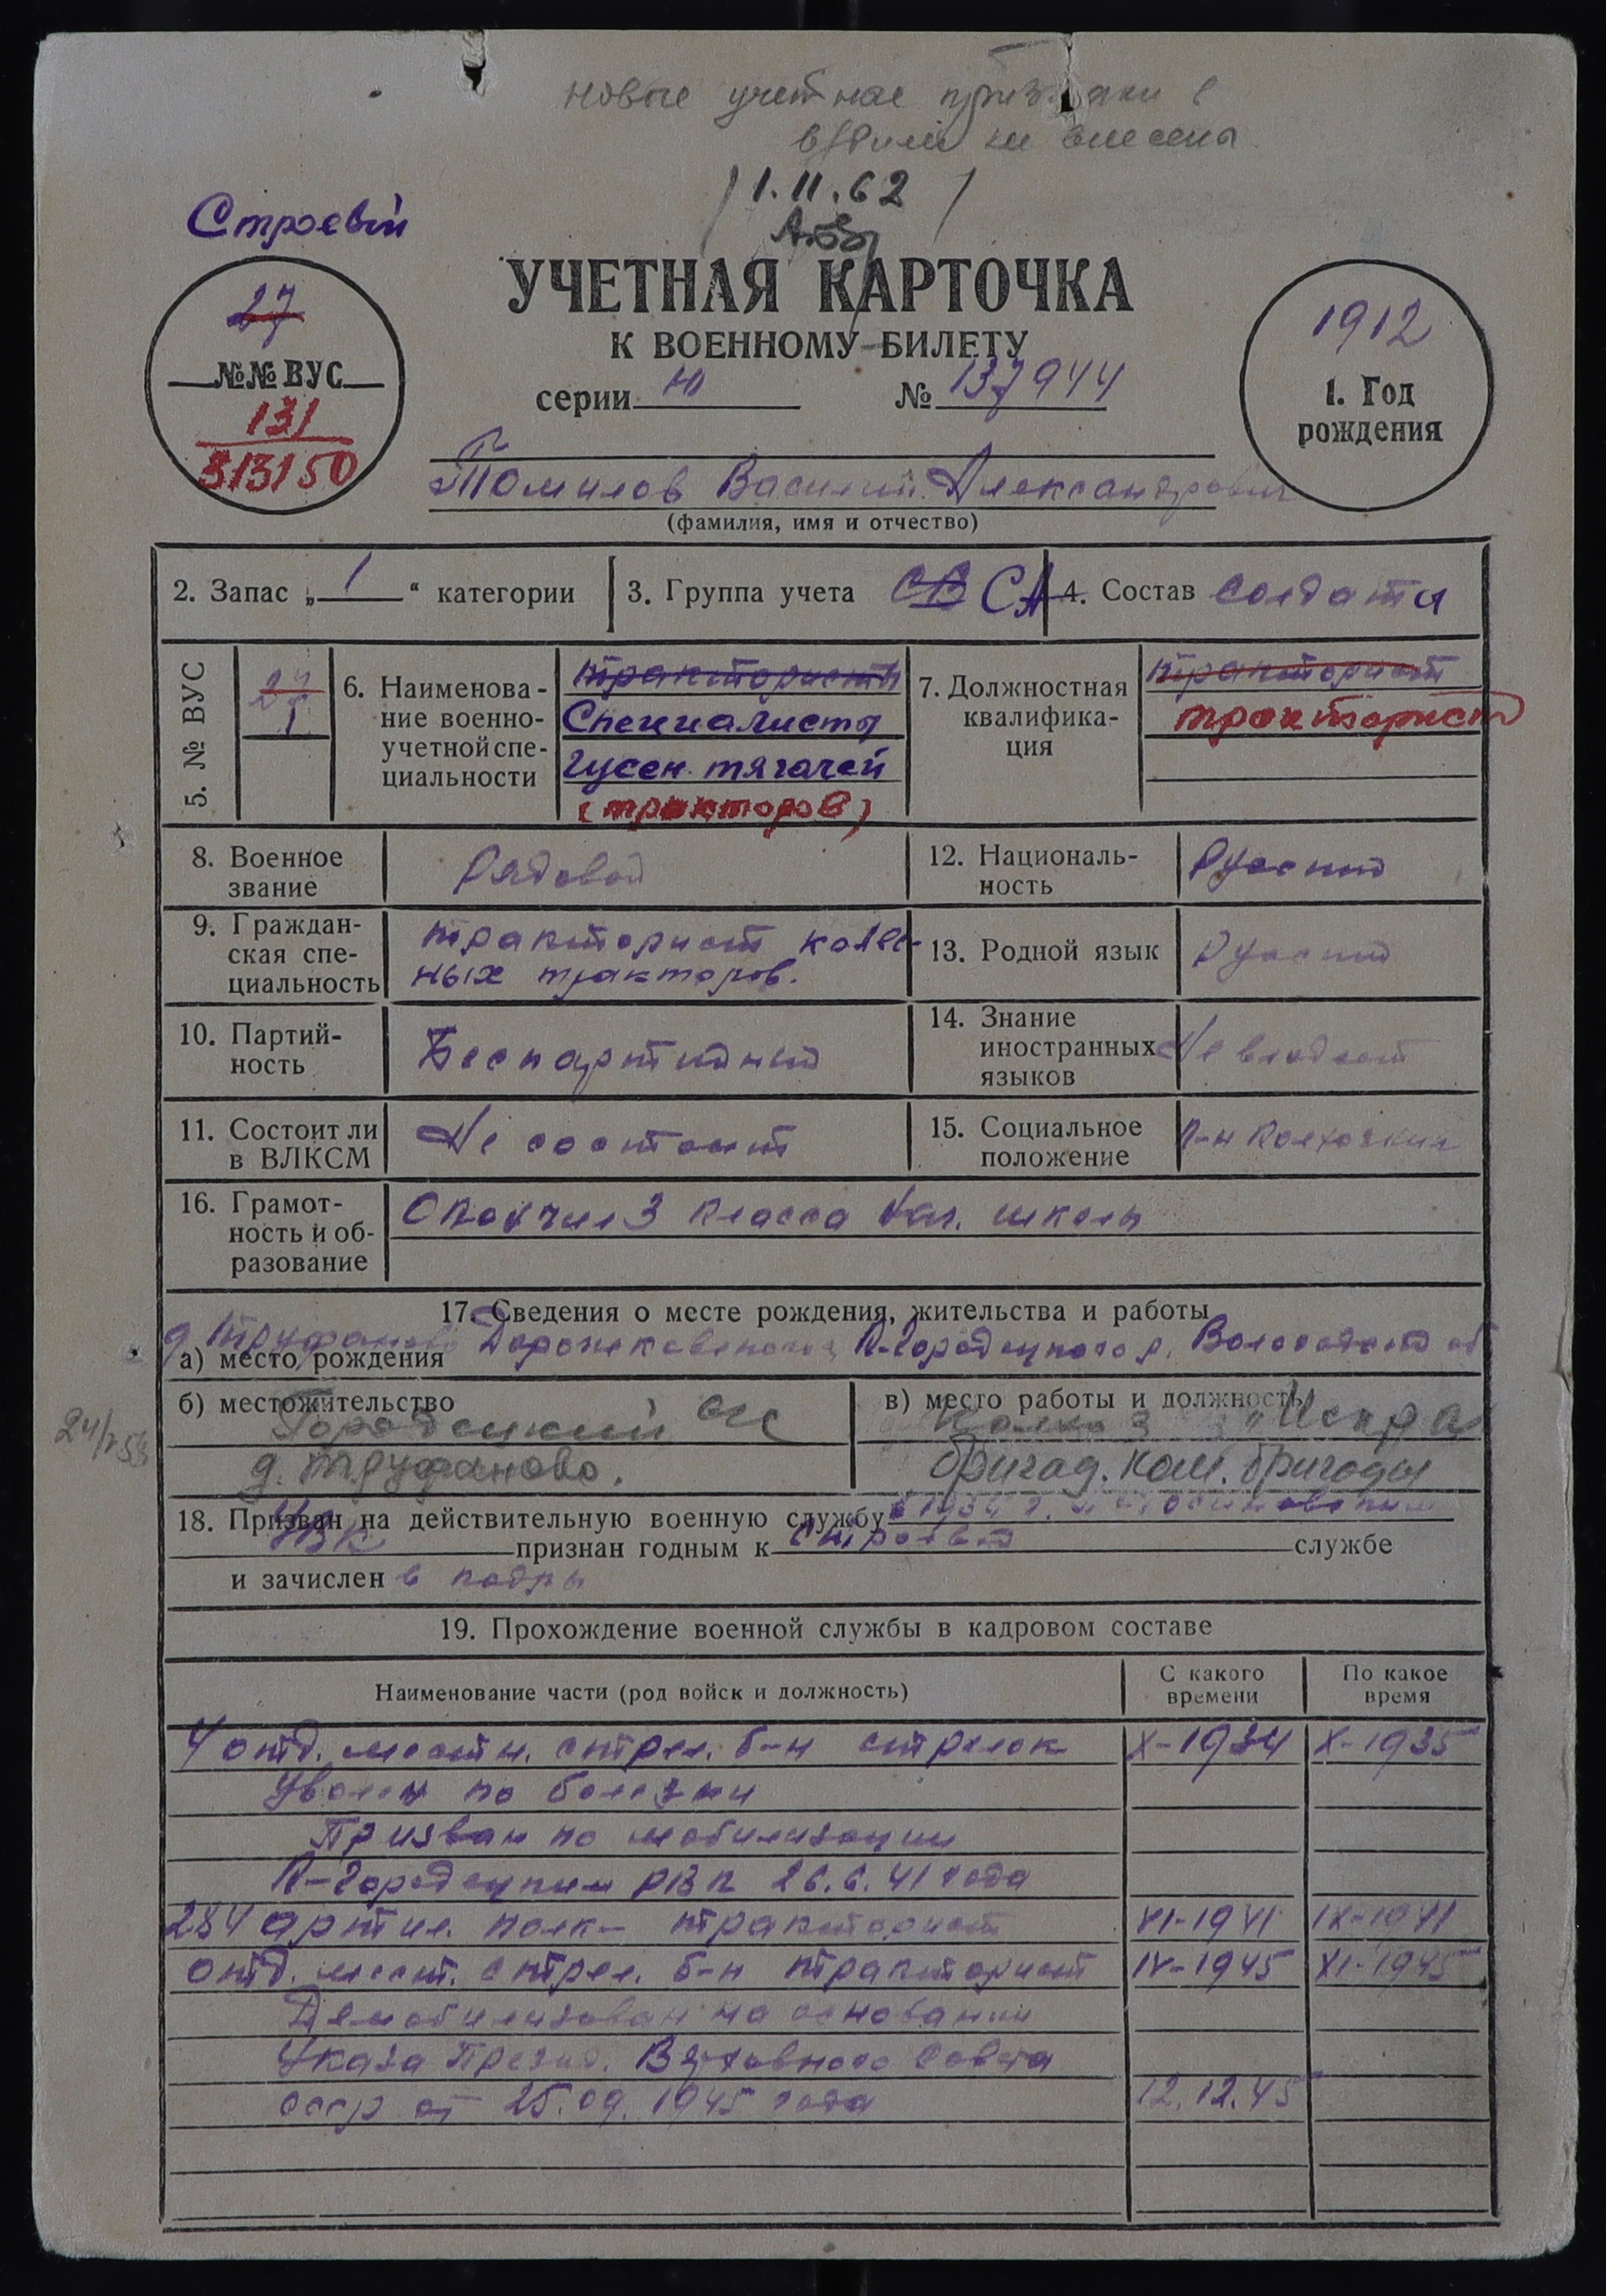 Новые учетные признаки в
в/билет не внесены
/ 1.11.62 /
Строевой
УЧЕТНАЯ КАРТОЧКА
К ВОЕННОМУ БИЛЕТУ
серии Ю № 137944
27
№№ ВУС
131
313150
1912
1. Год
рождения
Томилов Василий Александрович
(фамилия, имя и отчество)
2. Запас „ 1 “ категории
3. Группа учета СВ СА
4. Состав солдаты
5. № ВУС
27
1
6. Наименова-
ние военно-
учетной спе-
циальности
трактористы
Специалисты
гусен. тягачей
(тракторов)
7. Должностная
квалифика-
ция
тракторист
тракторист
8. Военное
звание
Рядовой
12. Националь-
ность
Русский
9. Граждан-
ская спе-
циальность
тракторист колес-
ных тракторов.
13. Родной язык
Русский
10. Партий-
ность
Беспартийный
14. Знание
иностранных
языков
Не владеет
11. Состоит ли
в ВЛКСМ
Не состоит
15. Социальное
положение
к-н колхозник
16. Грамот-
ность и об-
разование
Окончил 3 класса нач. школы
17. Сведения о месте рождения, жительства и работы
а) место рождения
д. Труфаново К-Городецкого р. Вологодской об
б) местожительство
Городецкий с/с
д. Труфаново.
24/
в) место работы и должность
Колхоз „Искра
бригад. ком. бригады
18. Призван на действительную военную службу в 1934 г.
РВК признан годным к строевой службе
и зачислен в кадры
19. Прохождение военной службы в кадровом составе
Наименование части (род войск и должность)
С какого
времени
По какое
время
4 отд. местн. стрел. б-н стрелок X-1934 X-1935
Уволен по болезни
Призван по мобилизации
К-Городецким РВК 26.6.41 года
284 артил. полк- тракторист VI-1941 IX-1941
отд. мест. стрел. б-н тракторист IV-1945 XI-1945
Демобилизован на основании
Указа Презид. Верховного Совета
СССР от 25.09.1945 года 12.12.45